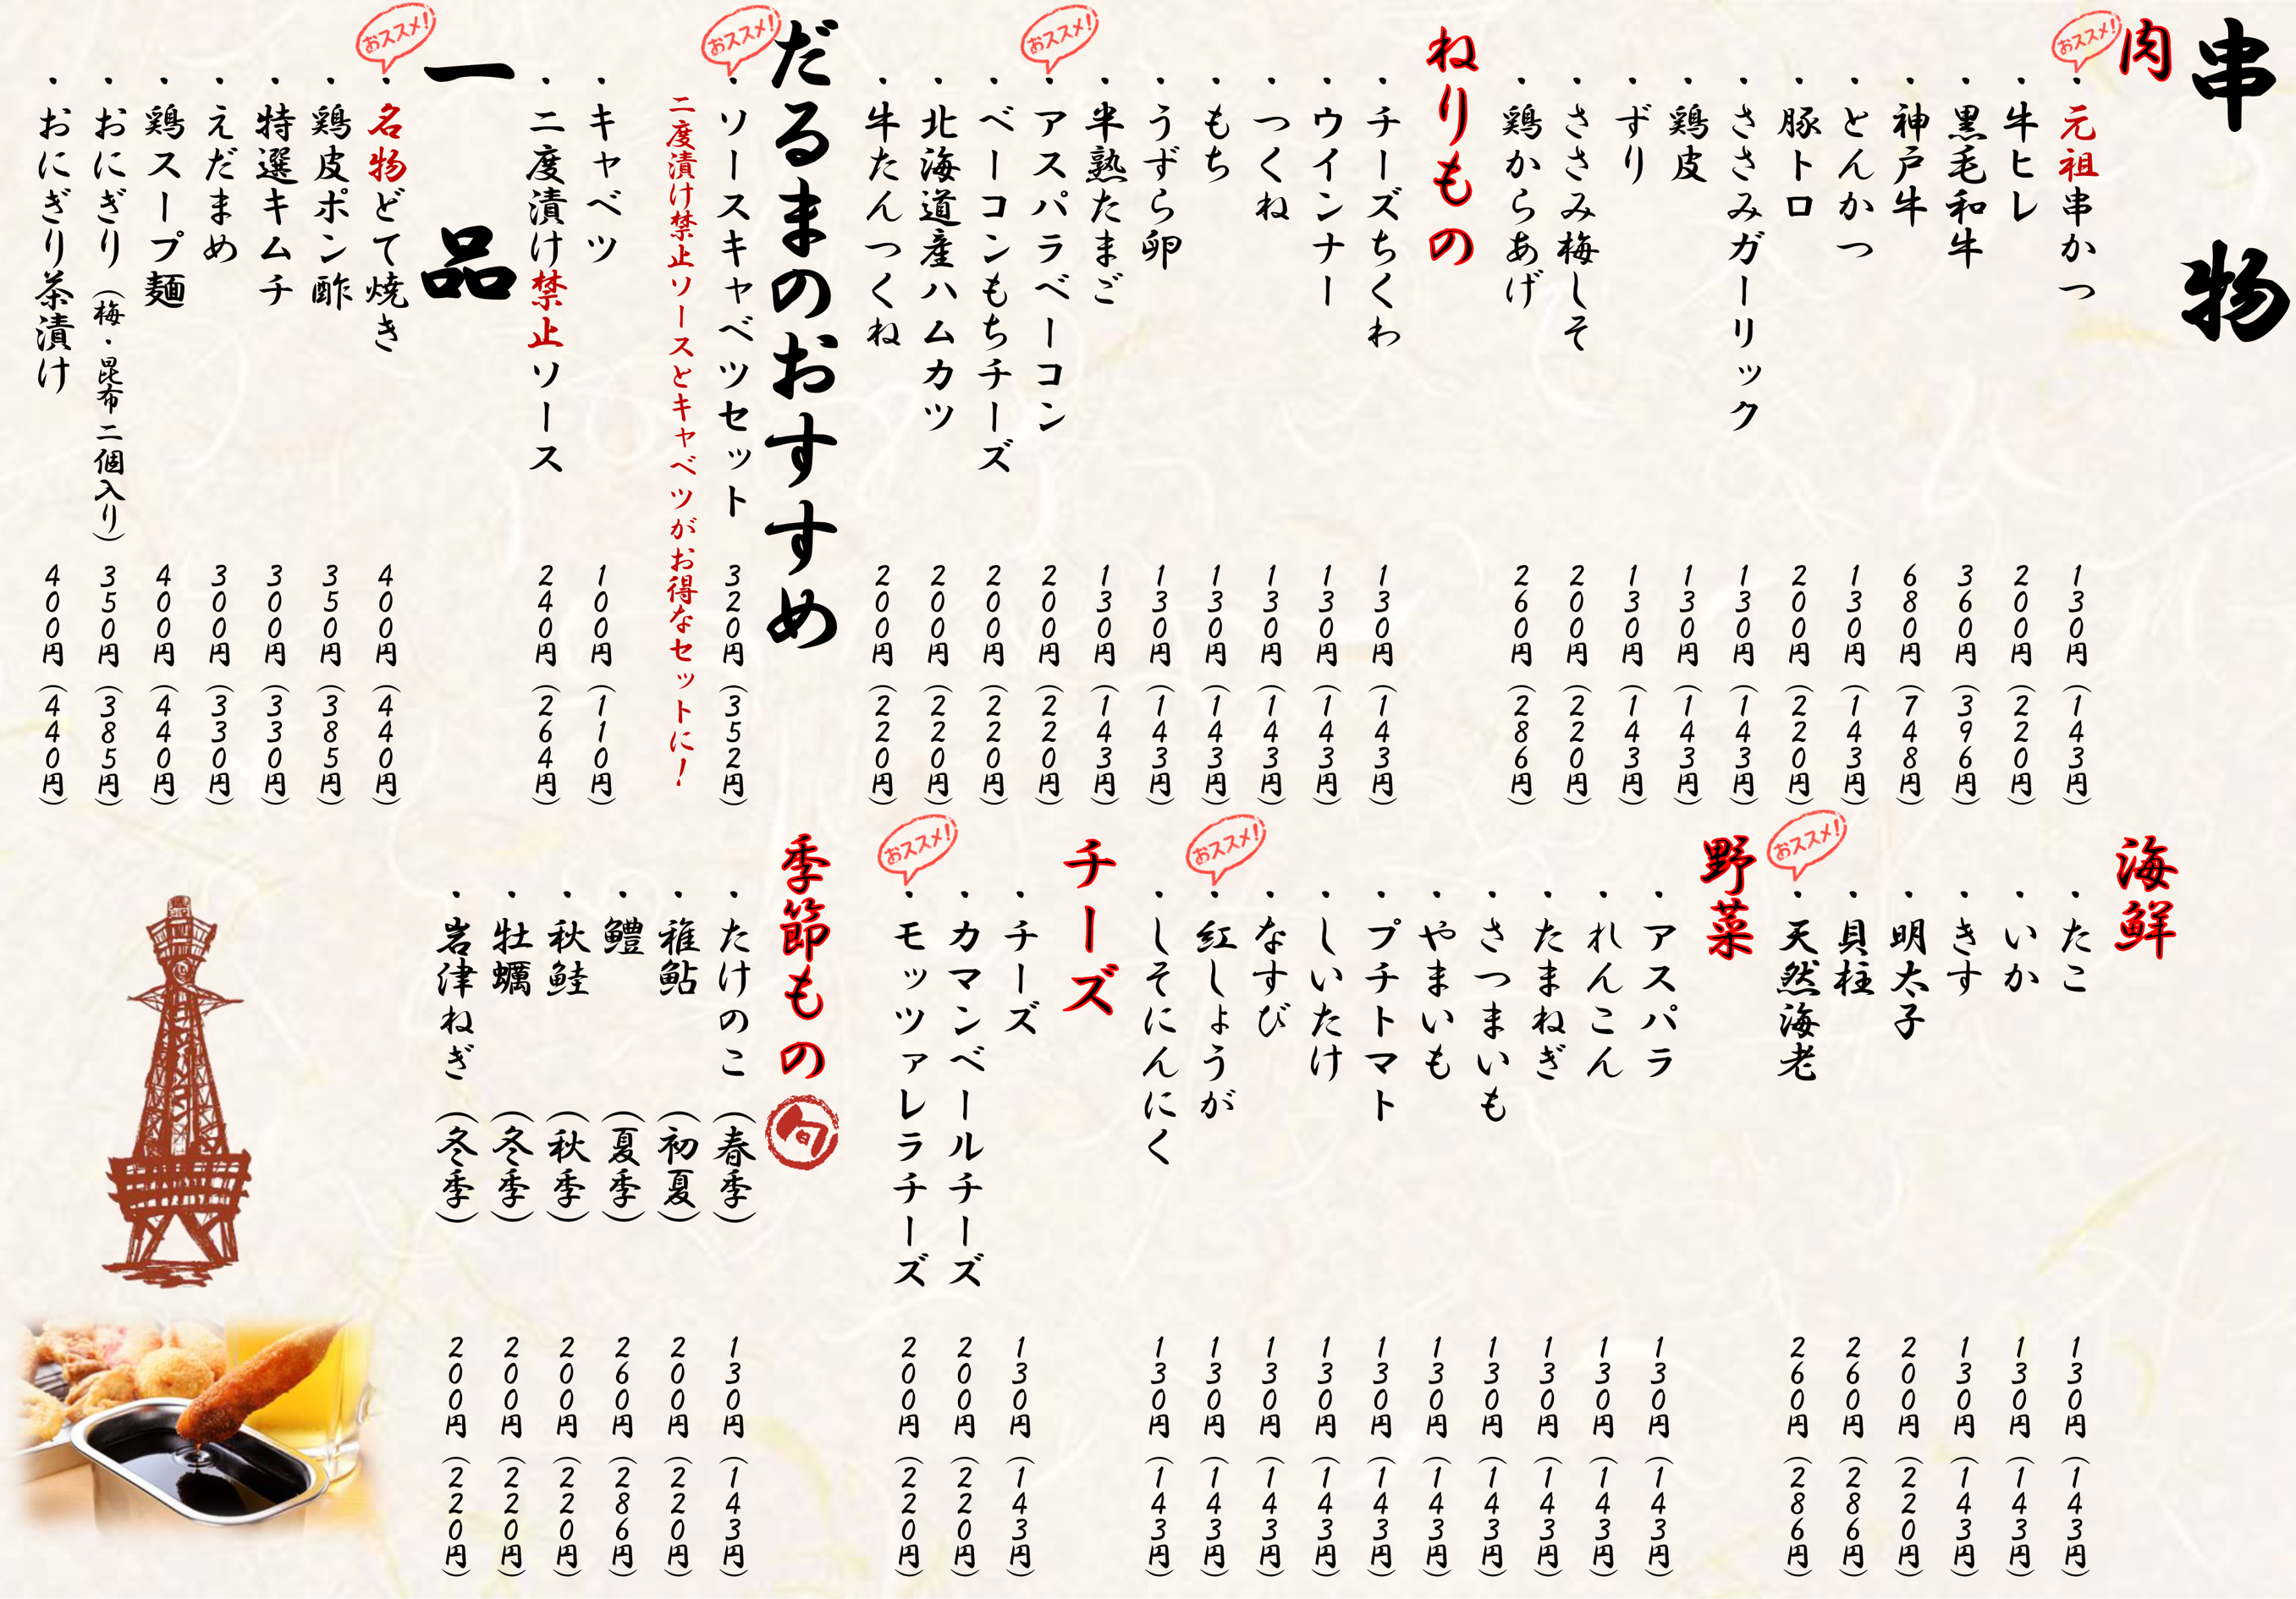 串物
肉
おススメ!
・元祖串かつ 130円(143円)
・牛ヒレ 200円(220円)
・黒毛和牛 360円(396円)
・神戸牛 680円(748円)
・とんかつ 130円(143円)
・豚トロ 200円(220円)
・ささみガーリック 130円(143円)
・鶏皮 130円(143円)
・ずり 130円(143円)
・ささみ梅しそ 200円(220円)
・鶏からあげ 260円(286円)
ねりもの
・チーズちくわ 130円(143円)
・ウインナー 130円(143円)
・つくね 130円(143円)
・もち 130円(143円)
・うずら卵 130円(143円)
・半熟たまご 130円(143円)
おススメ!
・アスパラベーコン 200円(220円)
・ベーコンもちチーズ 200円(220円)
・北海道産ハムカツ 200円(220円)
・牛たんつくね 200円(220円)
だるまのおすすめ
おススメ!
・ソースキャベツセット 320円(352円)
二度漬け禁止ソースとキャベツがお得なセットに!
・キャベツ 100円(110円)
・二度漬け禁止ソース 240円(264円)
一品
おススメ!
・名物どて焼き 400円(440円)
・鶏皮ポン酢 350円(385円)
・特選キムチ 300円(330円)
・えだまめ 300円(330円)
・鶏スープ麺 400円(440円)
・おにぎり(梅・昆布 二個入り) 350円(385円)
・おにぎり茶漬け 400円(440円)
海鮮
・たこ 130円(143円)
・いか 130円(143円)
・きす 130円(143円)
・明太子 200円(220円)
・貝柱 260円(286円)
おススメ!
・天然海老 260円(286円)
野菜
・アスパラ 130円(143円)
・れんこん 130円(143円)
・たまねぎ 130円(143円)
・さつまいも 130円(143円)
・やまいも 130円(143円)
・プチトマト 130円(143円)
・しいたけ 130円(143円)
・なすび 130円(143円)
おススメ!
・紅しょうが 130円(143円)
・しそにんにく 130円(143円)
チーズ
・チーズ 130円(143円)
・カマンベールチーズ 200円(220円)
おススメ!
・モッツァレラチーズ 200円(220円)
季節もの 旬
・たけのこ(春季) 130円(143円)
・稚鮎(初夏) 200円(220円)
・鱧(夏季) 260円(286円)
・秋鮭(秋季) 200円(220円)
・牡蠣(冬季) 200円(220円)
・岩津ねぎ(冬季) 200円(220円)